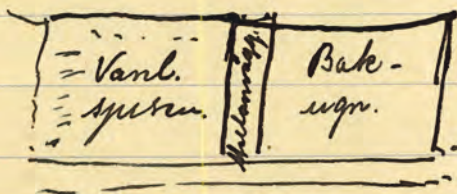 Vanl.
spisen.
Mellanvägg.
Bak-
ugn.